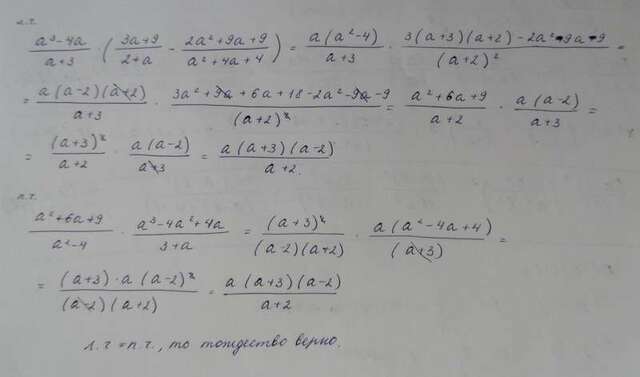 л.ч.
(a³-4a)/(a+3) · ((3a+9)/(2+a) - (2a²+9a+9)/(a²+4a+4)) = a(a²-4)/(a+3) · (3(a+3)(a+2)-2a²-9a-9)/(a+2)² =
= a(a-2)(a+2)/(a+3) · (3a²+9a+6a+18-2a²-9a-9)/(a+2)² = (a²+6a+9)/(a+2) · a(a-2)/(a+3) =
= (a+3)²/(a+2) · a(a-2)/(a+3) = a(a+3)(a-2)/(a+2).
п.ч.
(a²+6a+9)/(a²-4) · (a³-4a²+4a)/(3+a) = (a+3)²/((a-2)(a+2)) · a(a²-4a+4)/(a+3) =
= (a+3)·a(a-2)²/((a-2)(a+2)) = a(a+3)(a-2)/(a+2)
л.ч = п.ч., то тождество верно.